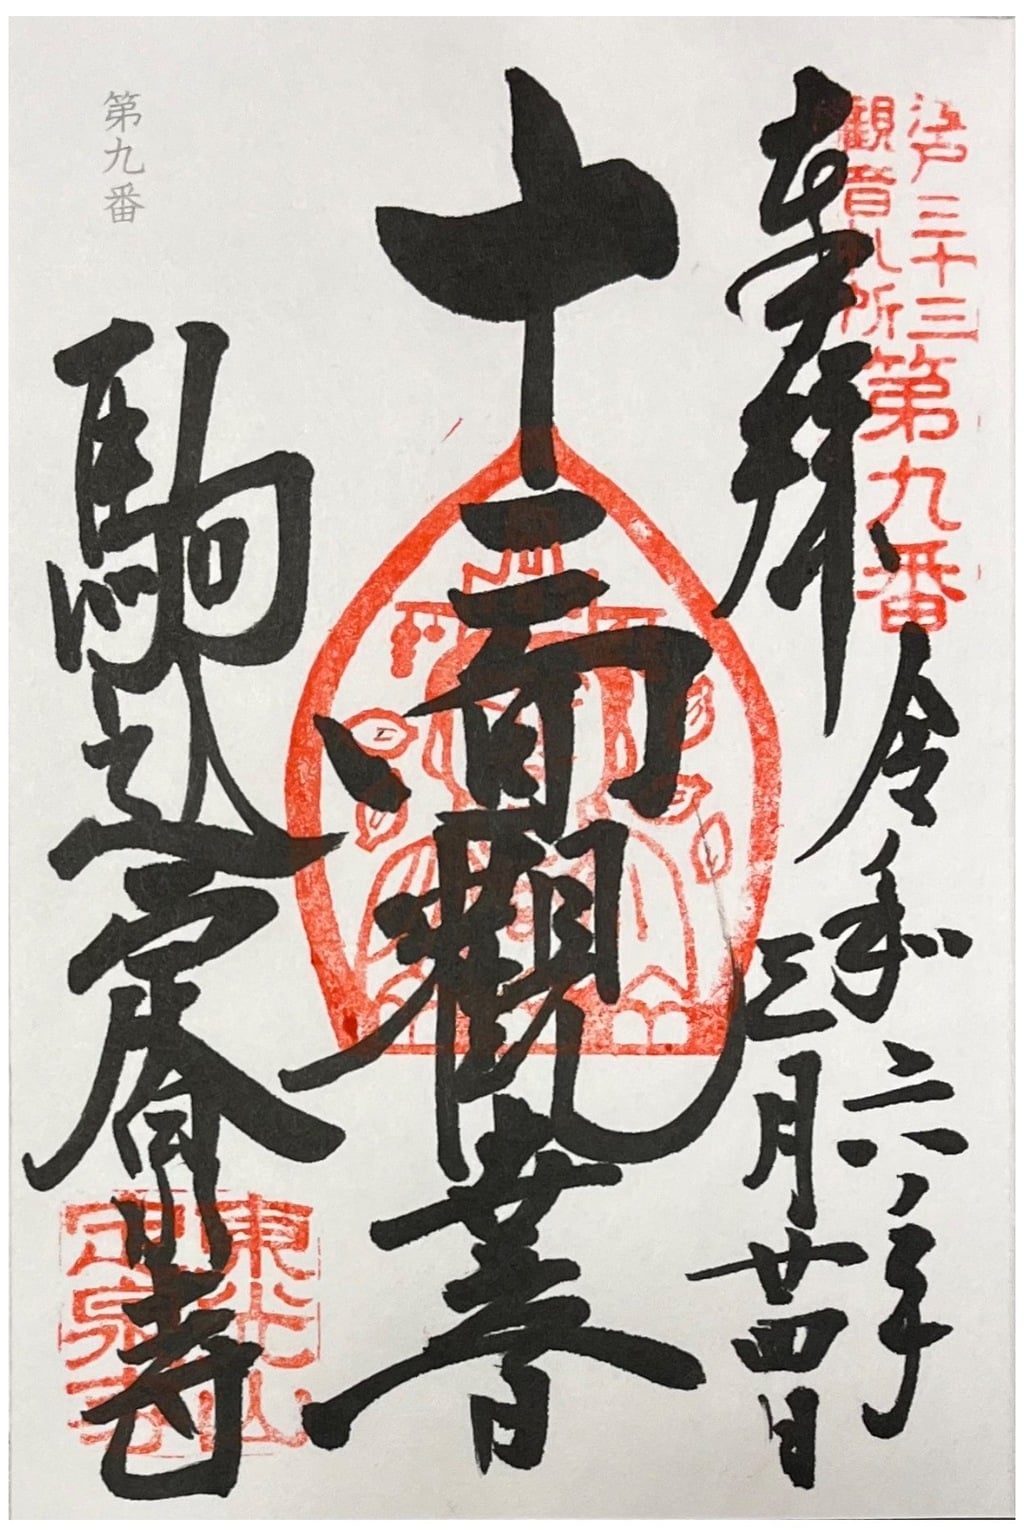 江戸三十三
観音札所
第九番
奉拝
令和六年
三月廿四日
十一面觀世音
駒込定泉寺
東光山
定泉寺
第九番